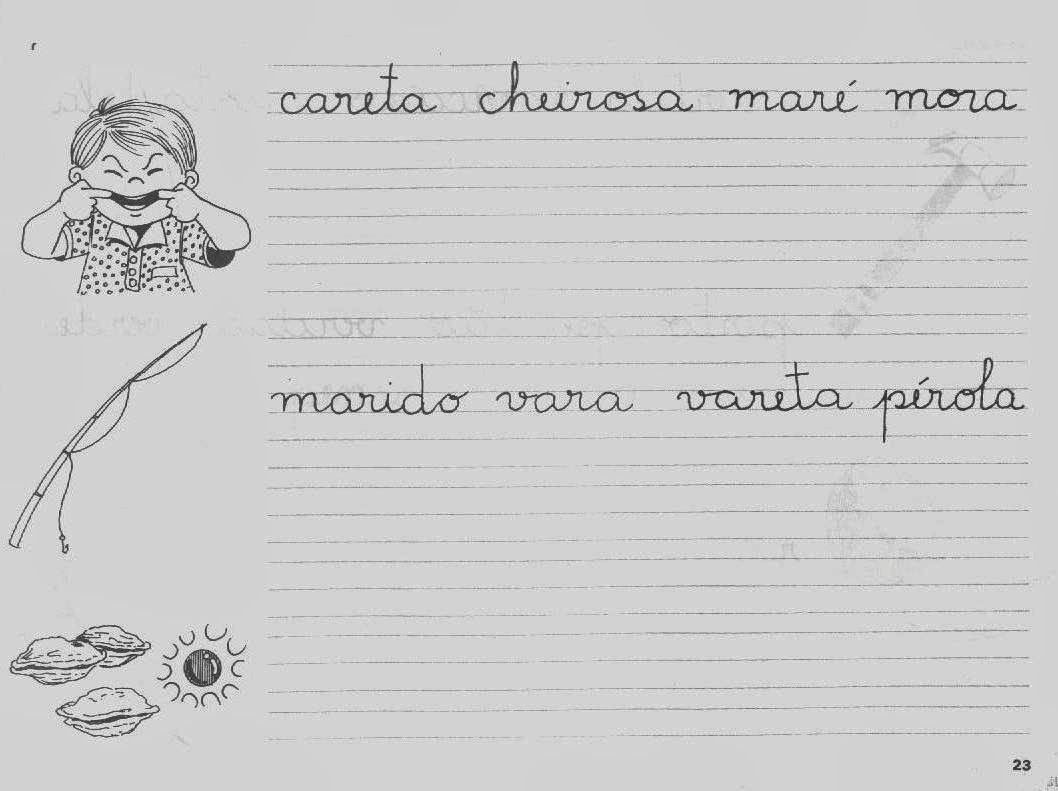 r
careta cheirosa maré mora
marido vara vareta pérola
23